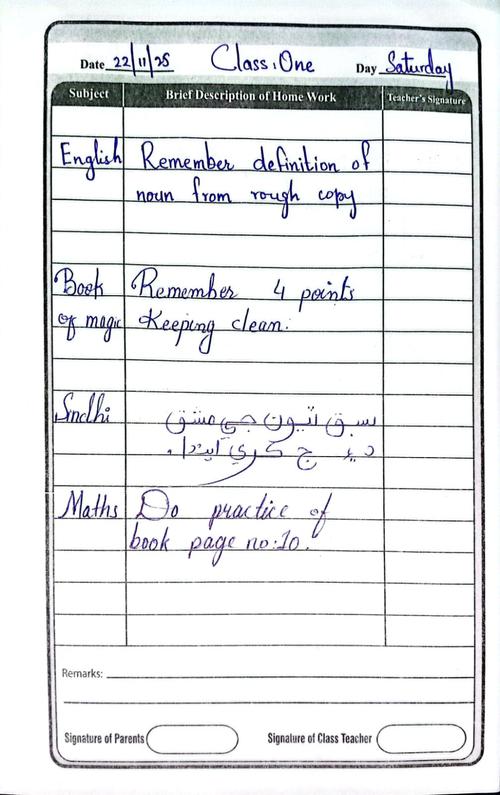 Date 22/11/25 Class: One Day Saturday
Subject Brief Description of Home Work Teacher's Signature
English Remember definition of
noun from rough copy
Book Remember 4 points
of magic Keeping clean.
Sindhi سبق ٽيون جي مشق
ج ڪري ايندا.
Maths Do practice of
book page no:10.
Remarks:
Signature of Parents Signature of Class Teacher